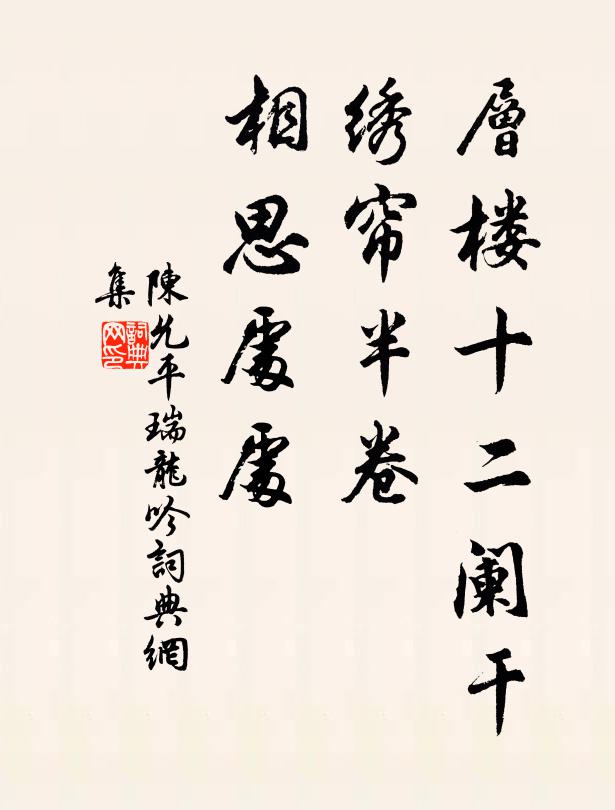 層楼十二阑干
绣帘半卷
相思處處
陳允平瑞龍吟詞典網
集
詞典
网印